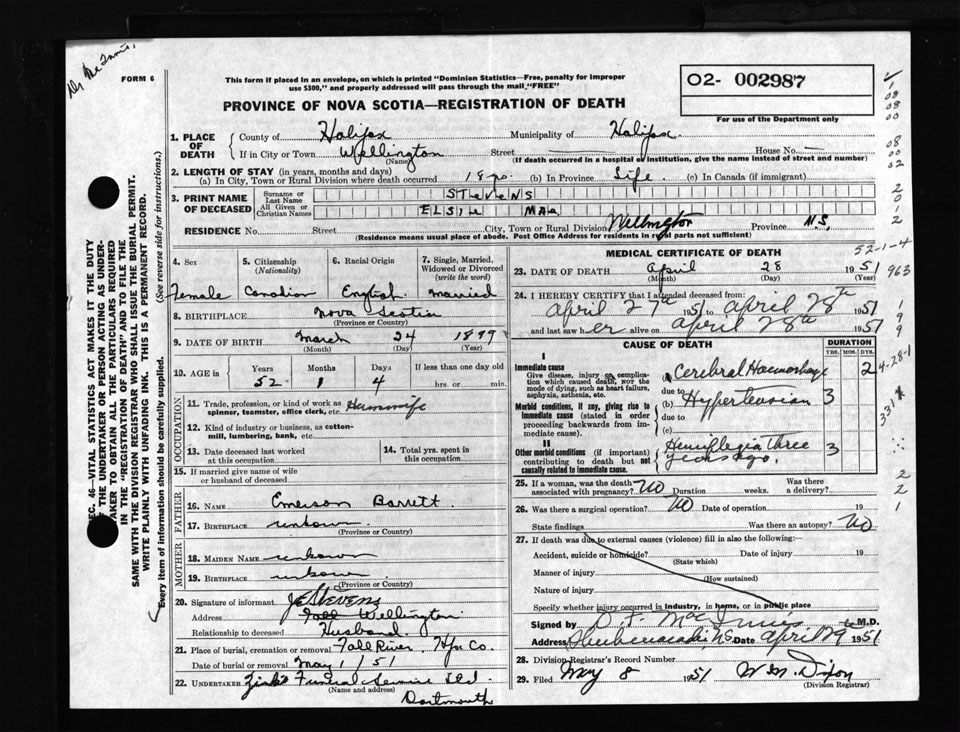 FORM 6
This form if placed in an envelope, on which is printed "Dominion Statistics—Free, penalty for improper
use $300," and properly addressed will pass through the mail "FREE"
O2- 002987
For use of the Department only
PROVINCE OF NOVA SCOTIA—REGISTRATION OF DEATH
1. PLACE OF DEATH County of Halifax Municipality of Halifax
If in City or Town Wellington Street House No. —
(Name) (If death occurred in a hospital or institution, give the name instead of street and number)
2. LENGTH OF STAY (in years, months and days)
(a) In City, Town or Rural Division where death occurred (b) In Province Life (c) In Canada (if immigrant)
3. PRINT NAME OF DECEASED Surname or Last Name STEVENS
All Given or Christian Names ELSIE MAE
RESIDENCE No. Street City, Town or Rural Division Wellington Province N.S.
(Residence means usual place of abode. Post Office Address for residents in rural parts not sufficient)
4. Sex 5. Citizenship (Nationality) 6. Racial Origin 7. Single, Married, Widowed or Divorced (write the word)
Female Canadian English Married
8. BIRTHPLACE Nova Scotia
(Province or Country)
9. DATE OF BIRTH March 24 1899
(Month) (Day) (Year)
10. AGE in Years Months Days If less than one day old
52 1 4 hrs. or min.
OCCUPATION
11. Trade, profession, or kind of work as spinner, teamster, office clerk, etc. Housewife
12. Kind of industry or business, as cotton-mill, lumbering, bank, etc.
13. Date deceased last worked at this occupation
14. Total yrs. spent in this occupation
15. If married give name of wife or husband of deceased
FATHER
16. NAME Emerson Barrett
17. BIRTHPLACE unkown
(Province or Country)
MOTHER
18. MAIDEN NAME unkown
19. BIRTHPLACE unkown
(Province or Country)
20. Signature of informant J E Stevens
Address Wellington
Relationship to deceased Husband
21. Place of burial, cremation or removal Fall River, Hfx Co.
Date of burial or removal May 1/51
22. UNDERTAKER Zink's Funeral Service Ltd.
(Name and address)
Dartmouth
MEDICAL CERTIFICATE OF DEATH
52-1-4
23. DATE OF DEATH April 28 1951
(Month) (Day) (Year)
963
24. I HEREBY CERTIFY that I attended deceased from:
April 27th 1951 to April 28th 1951
and last saw her alive on April 28th 1951
CAUSE OF DEATH DURATION
YRS. MOS. DYS.
I
Immediate cause
Give disease, injury or complication which caused death, NOT the mode of dying, such as heart failure, asphyxia, asthenia, etc.
(a) Cerebral Haemorrhage 2
due to
(b) Hypertension 3
Morbid conditions, if any, giving rise to immediate cause (stated in order proceeding backwards from immediate cause).
due to
(c)
II
Other morbid conditions (if important) contributing to death but not causally related to immediate cause.
Hemiplegia three
years ago. 3
4-28-1
331
25. If a woman, was the death associated with pregnancy? No Duration weeks. Was there a delivery?
26. Was there a surgical operation? No Date of operation 19
State findings Was there an autopsy? No
27. If death was due to external causes (violence) fill in also the following:—
Accident, suicide or homicide? Date of injury 19
(State which)
Manner of injury
(How sustained)
Nature of injury
Specify whether injury occurred in industry, in home, or in public place
Signed by D. F. MacInnis M.D.
Address Shubenacadie, N.S. Date April 29 1951
28. Division Registrar's Record Number
29. Filed May 8 1951 W M. Dixon
(Division Registrar)
SEC. 46—VITAL STATISTICS ACT MAKES IT THE DUTY
OF THE UNDERTAKER OR PERSON ACTING AS UNDER-
TAKER TO OBTAIN ALL THE PARTICULARS REQUIRED
IN THE "REGISTRATION OF DEATH" AND TO FILE THE
SAME WITH THE DIVISION REGISTRAR WHO SHALL ISSUE THE BURIAL PERMIT.
WRITE PLAINLY WITH UNFADING INK. THIS IS A PERMANENT RECORD.
Every item of information should be carefully supplied. (See reverse side for instructions.)